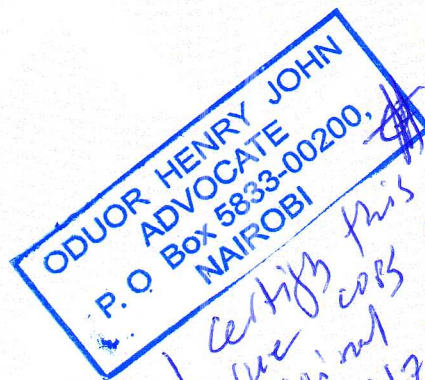 ODUOR HENRY JOHN
ADVOCATE
P. O Box 5833-00200,
NAIROBI
I certify this
true copy